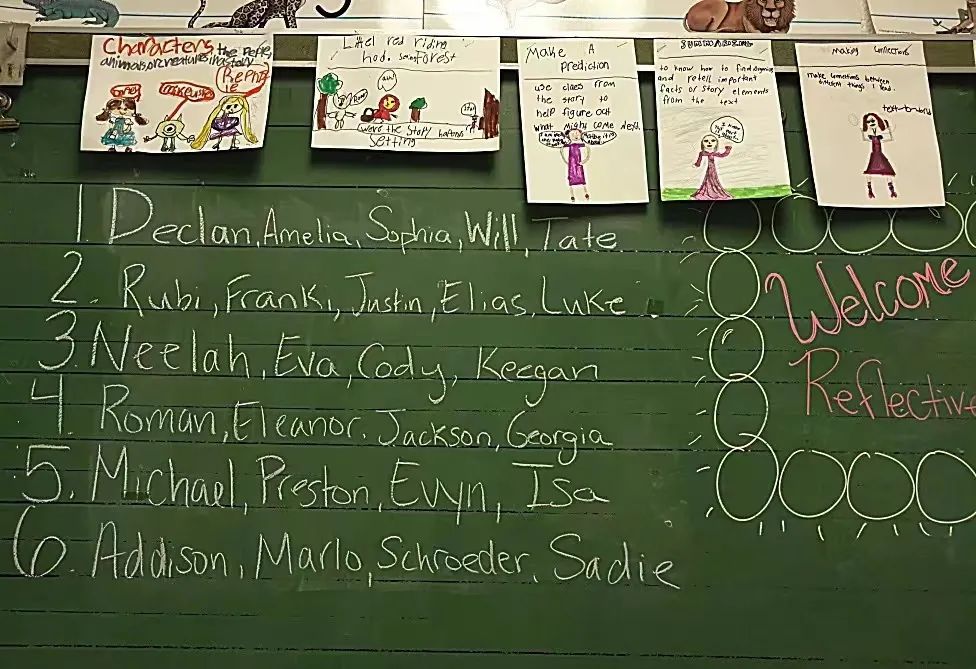 Characters the People,
animals, or creatures in a story
Litel red riding
hod. forest
Were the Story happens
Setting
Make A
prediction
use clues from
the story to
help figure out
what might come next.
SUMMARIZING
to know how to find
and retell important
facts or story elements
from the text
Making Connections
make connections between
different things I read.
1. Declan, Amelia, Sophia, Will, Tate
2. Rubi, Franki, Justin, Elias, Luke
3. Neelah, Eva, Cody, Keegan
4. Roman, Eleanor, Jackson, Georgia
5. Michael, Preston, Evyn, Isa
6. Addison, Marlo, Schroeder, Sadie
Welcome
Reflective